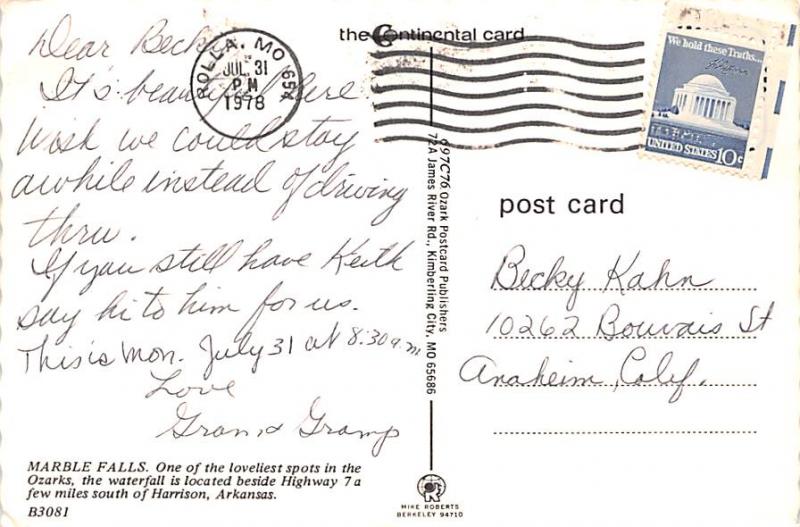 Dear Becky
It's beautiful here
Wish we could stay
awhile instead of driving
thru.
If you still have Keith
say hi to him for us.
This is Mon. July 31 at 8:30 a.m
Love
Gran & Gramp
MARBLE FALLS. One of the loveliest spots in the
Ozarks, the waterfall is located beside Highway 7 a
few miles south of Harrison, Arkansas.
B3081
ROLLA, MO 654
JUL 31
PM
1978
the Continental card
We hold these Truths...
UNITED STATES 10c
997C76 Ozark Postcard Publishers
72A James River Rd., Kimberling City, MO 65686
post card
Becky Kahn
10262 Bouvais St
Anaheim, Calif.
MIKE ROBERTS
BERKELEY 94710